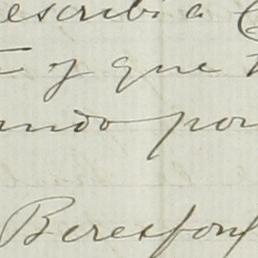 escribi a
y que
ando por
Beresf